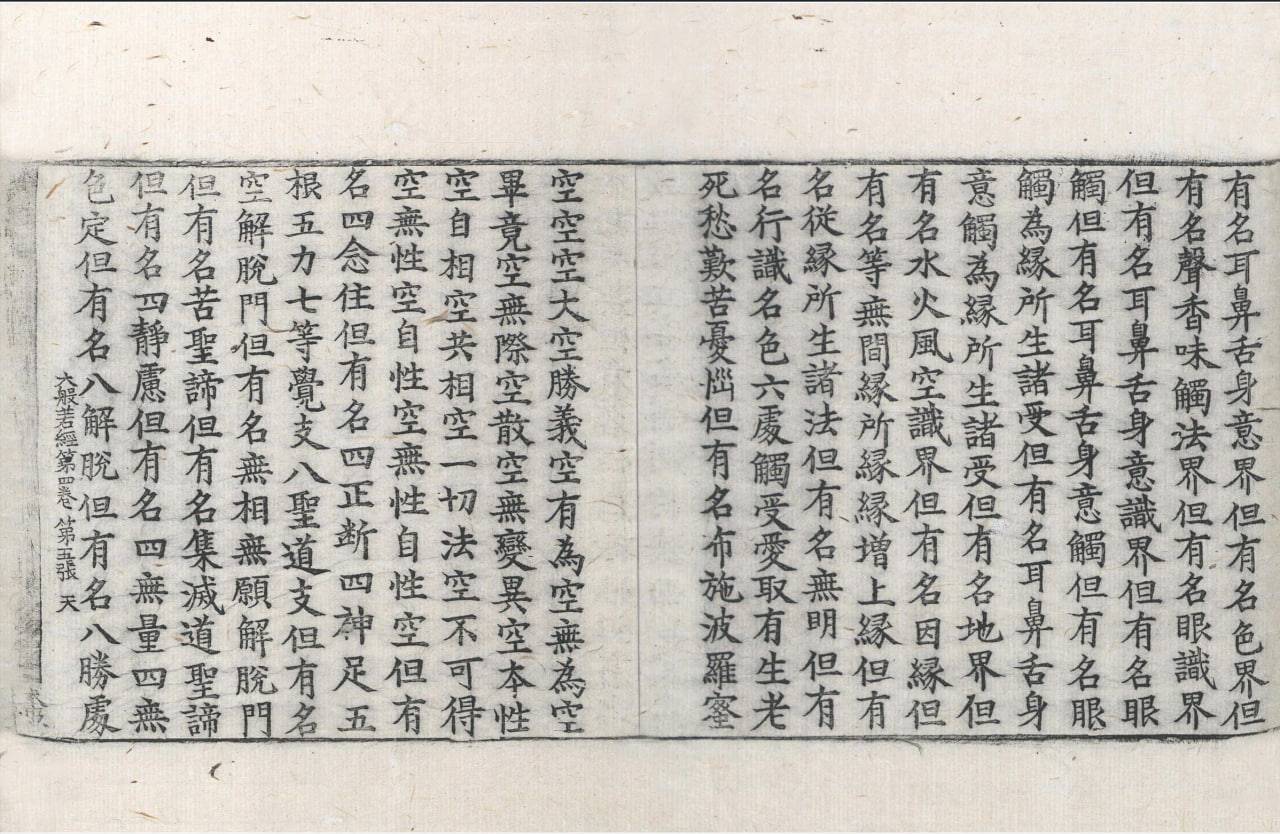 有名耳鼻舌身意界但有名色界但
有名聲香味觸法界但有名眼識界
但有名耳鼻舌身意識界但有名眼
觸但有名耳鼻舌身意觸但有名眼
觸為縁所生諸受但有名耳鼻舌身
意觸為縁所生諸受但有名地界但
有名水火風空識界但有名因縁但
有名等無間縁所縁縁増上縁但有
名從縁所生諸法但有名無明但有
名行識名色六處觸受愛取有生老
死愁歎苦憂惱但有名布施波羅蜜
空空空大空勝義空有為空無為空
畢竟空無際空散空無變異空本性
空自相空共相空一切法空不可得
空無性空自性空無性自性空但有
名四念住但有名四正断四神足五
根五力七等覺支八聖道支但有名
空解脫門但有名無相無願解脫門
但有名苦聖諦但有名集滅道聖諦
但有名四靜慮但有名四無量四無
色定但有名八解脫但有名八勝處
大般若經第四卷 第五張 天